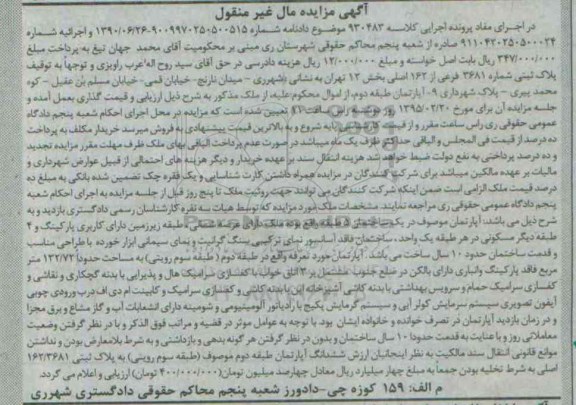 آگهی مزایده مال غیر منقول
در اجرای مفاد پرونده اجرایی کلاسه ۹۳۰۴۸۳ موضوع دادنامه شماره ۹۰۰۹۹۷۰۲۵۰۵۰۰۵۱۵-۱۳۹۰/۰۶/۲۶ و اجرائیه شماره
۹۱۱۰۴۲۰۲۵۰۵۰۰۰۲۴ صادره از شعبه پنجم محاکم حقوقی شهرستان ری مبنی بر محکومیت آقای محمد جهان تیغ به پرداخت مبلغ
۲۴۷/۰۰۰/۰۰۰ ریال بابت اصل خواسته و مبلغ ۱۲/۰۰۰/۰۰۰ ریال هزینه دادرسی در حق آقای سید روح اله عرب راویزی و توجهاً به توقیف
پلاک ثبتی شماره ۳۶۸۱ فرعی از ۱۶۲ اصلی بخش ۱۲ تهران به نشانی: شهرری - میدان نارنج - خیابان قمی - خیابان مسلم بن عقیل - کوه
محمد پیری - پلاک شهرداری ۹ - آپارتمان طبقه دوم، از اموال محکوم علیه، از ملک مذکور به شرح ذیل ارزیابی و قیمت گذاری بعمل آمده و
جلسه مزایده آن برای مورخ ۱۳۹۵/۰۲/۳۰ روز راس ساعت تعیین شده است که مزایده در محل اجرای احکام شعبه پنجم دادگاه
عمومی حقوقی ری راس ساعت مقرر و از قیمت کارشناسی پایه شروع و به بالاترین قیمت پیشنهادی به فروش میرسد خریدار مکلف به پرداخت
ده درصد از قیمت فی المجلس و الباقی حداکثر ظرف یک ماه میباشد در صورت عدم پرداخت الباقی بهای ملک ظرف مهلت مقرر مزایده تجدید
و ده درصد پرداختی به نفع دولت ضبط خواهد شد هزینه انتقال سند بر عهده خریدار و دیگر هزینه های احتمالی از قبیل عوارض شهرداری و
مالیات بر عهده مالکین میباشد برای شرکت کنندگان در مزایده همراه داشتن کارت شناسایی و یک فقره چک تضمین شده بانکی به مبلغ ده
درصد قیمت ملک الزامی است ضمن اینکه شرکت کنندگان می توانند جهت روئیت ملک تا پنج روز قبل از جلسه مزایده به اجرای احکام شعبه
پنجم دادگاه عمومی حقوقی ری مراجعه نمایند. مشخصات ملک مورد مزایده که توسط هیات سه نفره کارشناسان رسمی دادگستری بازدید و به
شرح ذیل می باشد: آپارتمان موصوف در یک ساختمان ۵ طبقه واقع بوده ملک دارای عرصه شمالی، طبقه زیرزمین دارای کاربری پارکینگ و ۴
طبقه دیگر مسکونی در هر طبقه یک واحد، ساختمان فاقد آسانسور نمای ترکیبی سنگ گرانیت و نمای سیمانی ابزار خورده با طراحی مناسب
و قدمت ساختمان حدود ۱۰ سال ساخت می باشد. آپارتمان مورد تعرفه واقع در طبقه دوم (طبقه سوم رویتی) به مساحت حدوداً ۱۳۲/۷۲ متر
مربع فاقد پارکینگ و انباری دارای بالکن در ضلع جنوب مشتمل بر ۳ اتاق خواب با کفسازی سرامیک هال و پذیرایی با بدنه گچکاری و نقاشی و
کفسازی سرامیک حمام و سرویس بهداشتی با بدنه کاشی آشپزخانه اپن با بدنه کاشی و کفسازی سرامیک و کابینت ام دی اف درب ورودی چوبی
آیفون تصویری سیستم سرمایش کولر آبی و سیستم گرمایش پکیج با رادیاتور آلومینیومی و شومینه دارای انشعابات آب و گاز مشاع و برق مجزا
و در زمان بازدید آپارتمان در تصرف خوانده و خانواده ایشان بود. با توجه به عوامل موثر در قضیه و مراتب فوق الذکر و با در نظر گرفتن وضعیت
معاملاتی روز و با عنایت به قدمت حدودا ۱۰ سال ساختمان و بدون در نظر گرفتن هر گونه بدهی و بازداشتی و به شرط بلامعارض بودن و نداشتن
موانع قانونی انتقال سند مالکیت به نظر اینجانبان ارزش ششدانگ آپارتمان طبقه دوم موصوف (طبقه سوم رویتی) به پلاک ثبتی ۱۶۲/۳۶۸۱
اصلی به شرط تخلیه بودن جمعاً به مبلغ چهار میلیارد ریال معادل چهارصد میلیون تومان (۴۰۰/۰۰۰/۰۰۰ تومان) ارزیابی و اعلام می گردد.
م الف: ۱۵۹ کوزه چی-دادورز شعبه پنجم محاکم حقوقی دادگستری شهرری